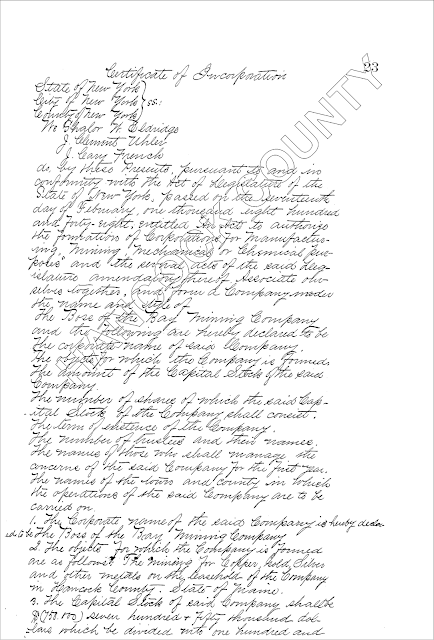 23
Certificate of Incorporation
State of New York
City of New York } SS:
County of New York
We Shalor W. Eldridge
J. Clement Uhler
J. Cary French
do, by these Presents, pursuant to and in
conformity with the Act of Legislature of the
State of New York, passed on the seventeenth
day of February, one thousand eight hundred
and forty-eight, entitled An Act to authorize
the formation of Corporations for Manufactur-
ing, Mining, Mechanical or Chemical pur-
poses" and "the several acts of the said Leg-
islature amendatory thereof Associate our-
selves together, and form a Company under
the name and style of
The Boss of the Bay Mining Company
and the following are hereby declared to be
The corporate name of said Company.
The objects for which the Company is formed.
The amount of the Capital Stock of the said
Company.
The number of shares of which the said Cap-
ital Stock of the Company shall consist.
The term of existence of the Company.
The number of trustees and their names.
The names of those who shall manage the
concerns of the said Company for the first year.
The names of the towns and county in which
the operations of the said Company are to be
carried on.
1. The Corporate name of the said Company is hereby declar-
ed to be The Boss of the Bay Mining Company
2. The objects for which the Company is formed
are as follows: The mining for Copper, Gold, Silver
and other metals on the leasehold of the Company
in Hancock County. State of Maine.
3. The Capital Stock of said Company shall be
$(750.000) seven hundred & Fifty thousand dol-
lars which be divided into one hundred and
COUNTY